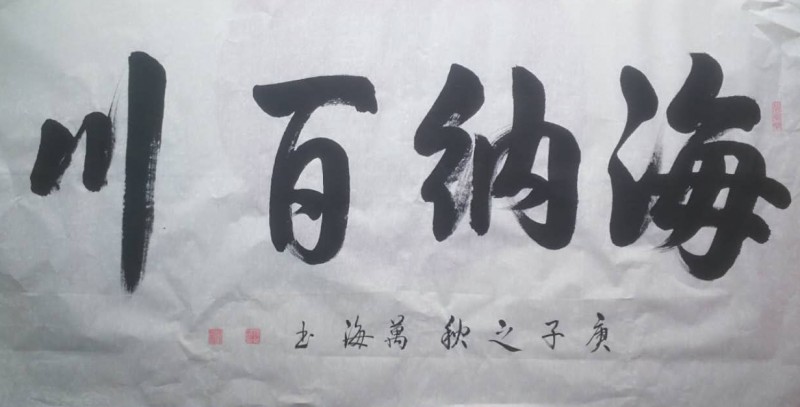 海纳百川
庚子之秋萬海书